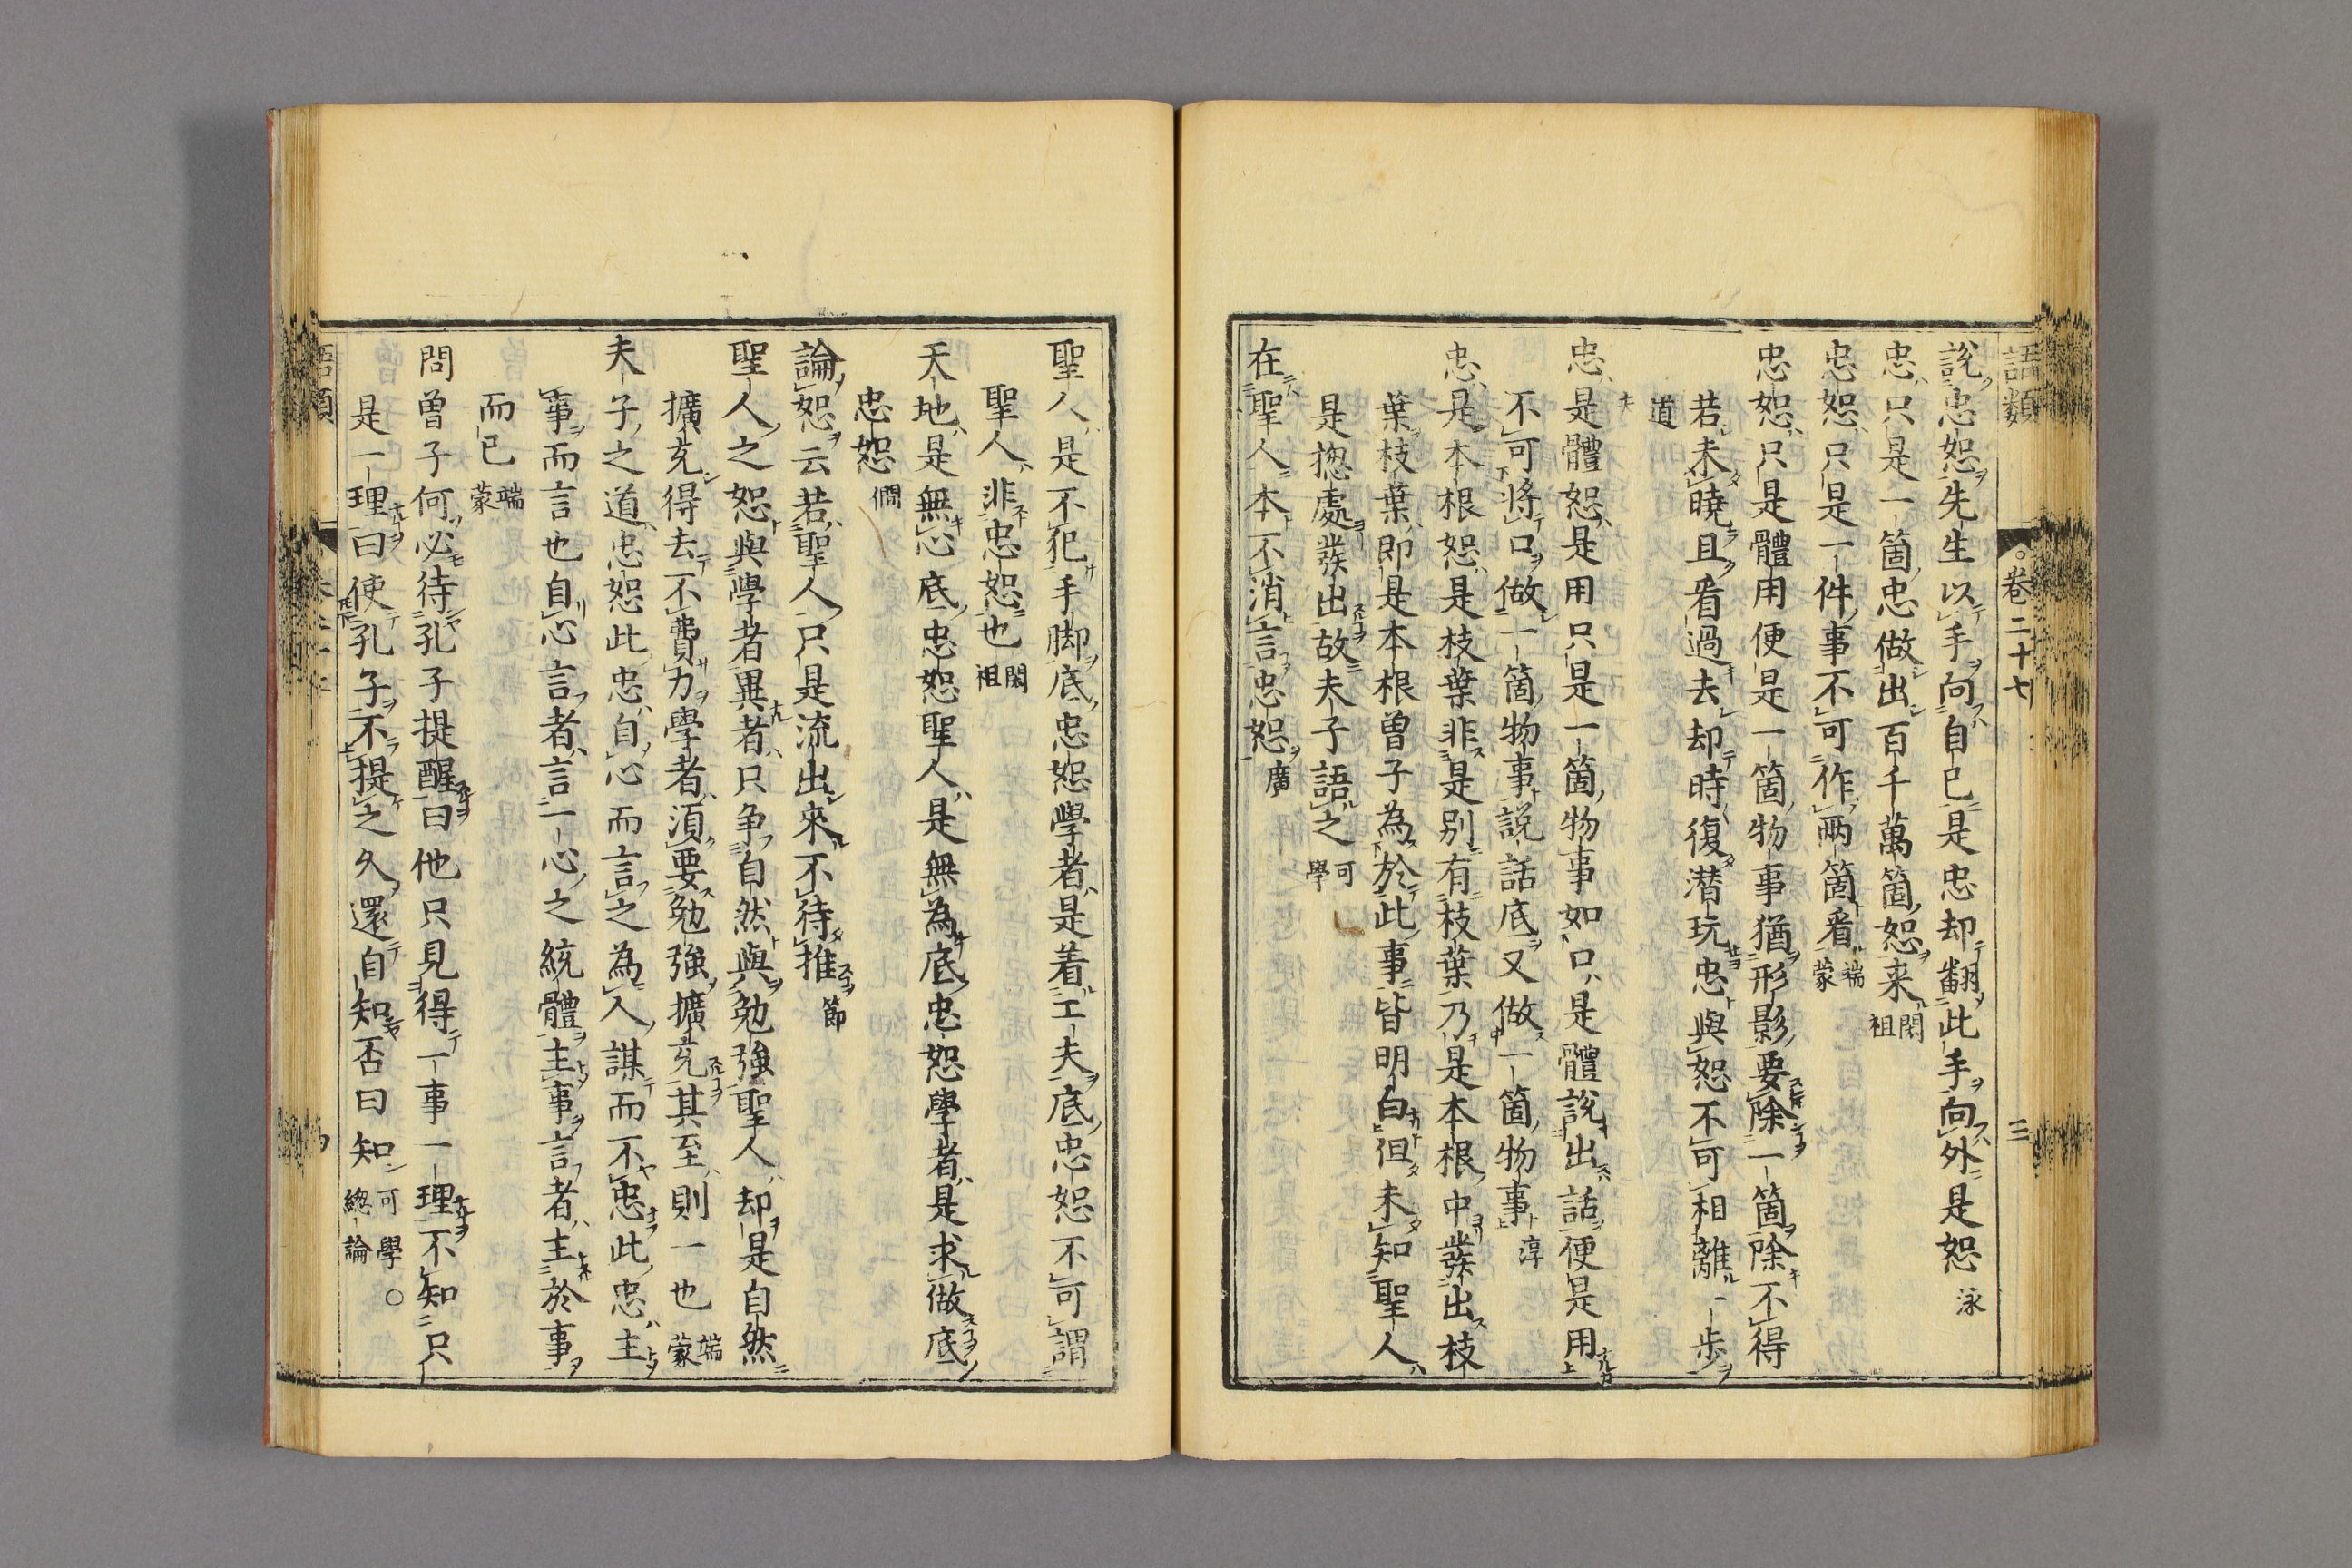 語類　卷二十七　三
說忠恕先生以手向自已是忠却翻此手向外是恕 泳
忠只是一箇忠做出百千萬箇恕来 閎祖
忠恕只是一件事不可作兩箇看 端蒙
忠恕只是體用便是一箇物事猶形影要除一箇除不得
若未曉且看過去却時復潛玩忠與恕不可相離一步
道夫
忠是體恕是用只是一箇物事如口是體說出話便是用
不可將口做一箇物事說話底又做一箇物事 淳
忠是本根恕是枝葉非是別有枝葉乃是本根中發出枝
葉枝葉即是本根曾子為於此事皆明白但未知聖人
是揔處發出故夫子語之 可學
在聖人本不消言忠恕 廣
聖人是不犯手脚底忠恕學者是着工夫底忠恕不可謂
聖人非忠恕也 閎祖
天地是無心底忠恕聖人是無為底忠恕學者是求做底
忠恕 僩
論恕云若聖人只是流出來不待推 節
聖人之恕與學者異者只争自然與勉強聖人却是自然
擴充得去不費力學者須要勉強擴充其至則一也 端蒙
夫子之道忠恕此忠自心而言之為人謀而不忠此忠主
事而言也自心言者言一心之統體主事言者主於事
而已 端蒙
問曾子何必待孔子提醒曰他只見得一事一理不知只
是一理曰使孔子不提之久還自知否曰知 可學 總論 ○
語類